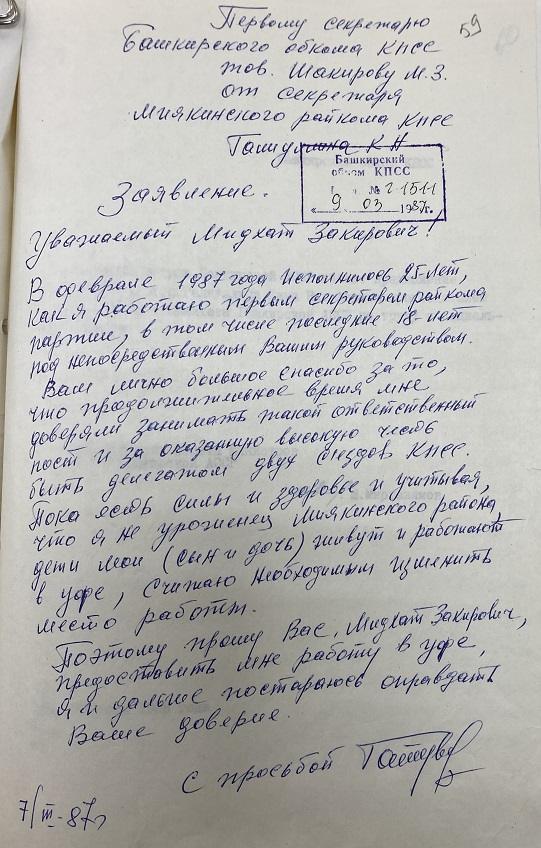 59
Первому секретарю
Башкирского обкома КПСС
тов. Шакирову М.З.
от секретаря
Миякинского райкома КПСС
Гатиуллина К Н
Башкирский
обком КПСС
№ 2-1511
« 9 03 1987г.
Заявление.
Уважаемый Мидхат Закирович!
В феврале 1987 года исполнилось 25 лет,
как я работаю первым секретарем райкома
партии, в том числе последние 18 лет
под непосредственным Вашим руководством.
Вам лично большое спасибо за то,
что продолжительное время мне
доверяли занимать такой ответственный
пост и за оказанную высокую честь
быть делегатом двух съездов КПСС.
Пока есть силы и здоровье и учитывая,
что я не уроженец Миякинского района,
дети мои (сын и дочь) живут и работают
в Уфе, считаю необходимым изменить
место работы.
Поэтому прошу Вас, Мидхат Закирович,
предоставить мне работу в Уфе,
я и дальше постараюсь оправдать
Ваше доверие.
С просьбой
7/III-87г